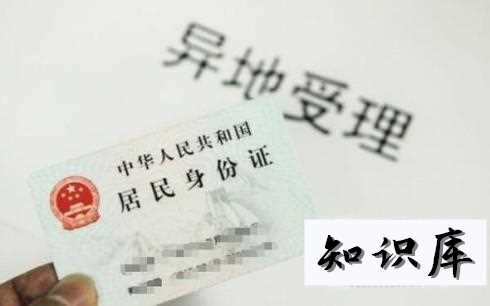 异地受理
中华人民共和国
居民身份证
知识库